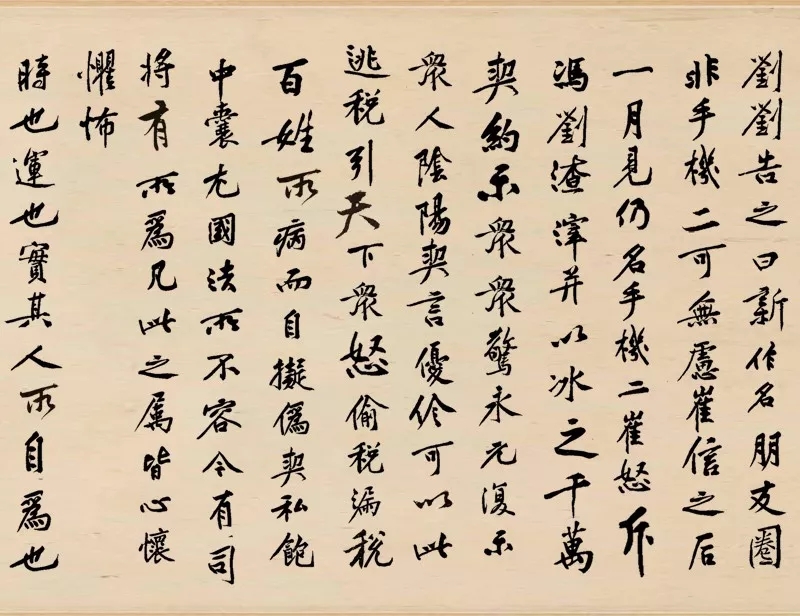 劉劉告之曰新作名朋友圈
非手機二可無慮崔信之后
一月見仍名手機二崔怒斥
馮劉渣滓并以冰之千萬
契約示衆衆驚永元復示
衆人陰陽契言優伶可以此
逃税引天下衆怒偷税漏税
百姓所病而自擬僞契私飽
中囊尤國法所不容今有司
将有所爲凡此之属皆心懷
懼怖
時也運也實其人所自爲也